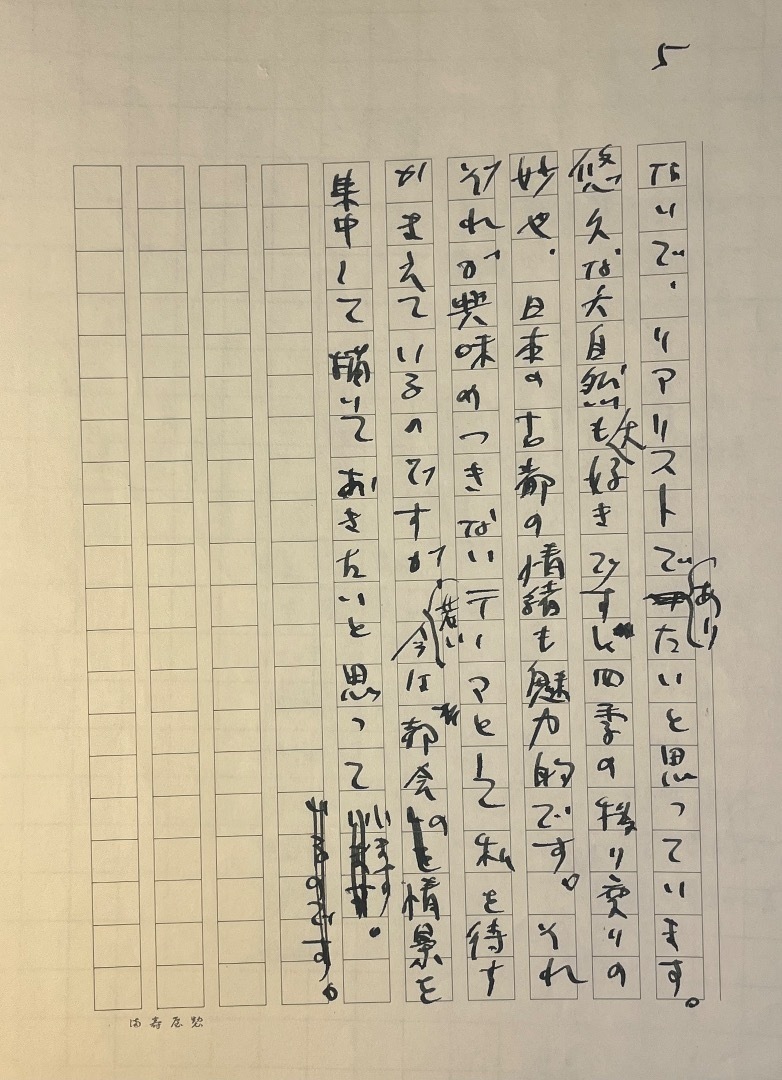 5
ないで、リアリストでありたいと思っています。
悠久な大自然も大好きですし四季の移り変りの
妙や、日本の古都の情緒も魅力的です。それ
ぞれが興味のつきないテイマとして私を待す
かまえているのですが、若い今は都会の情景を
集中して描いておきたいと思って
います。
満寿屋製